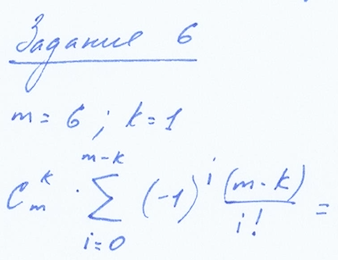 Задание 6
m = 6 ; k = 1
C_m^k · \sum_{i=0}^{m-k} (-1)^i \frac{(m-k)}{i!} =